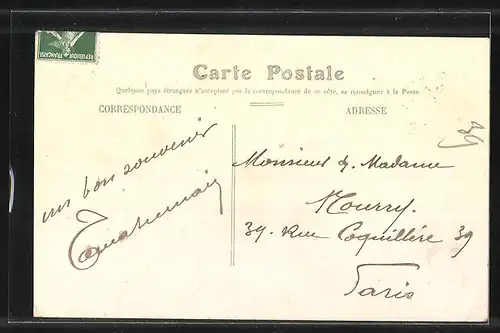 REPUBLIQUE FRANÇAISE
Carte Postale
Quelques pays étrangers n'acceptant pas la correspondance de ce côté, se renseigner à la Poste
CORRESPONDANCE
ADRESSE
un bon souvenir
Monsieur & Madame
Mourry.
39. Rue Coquillère 39
Paris